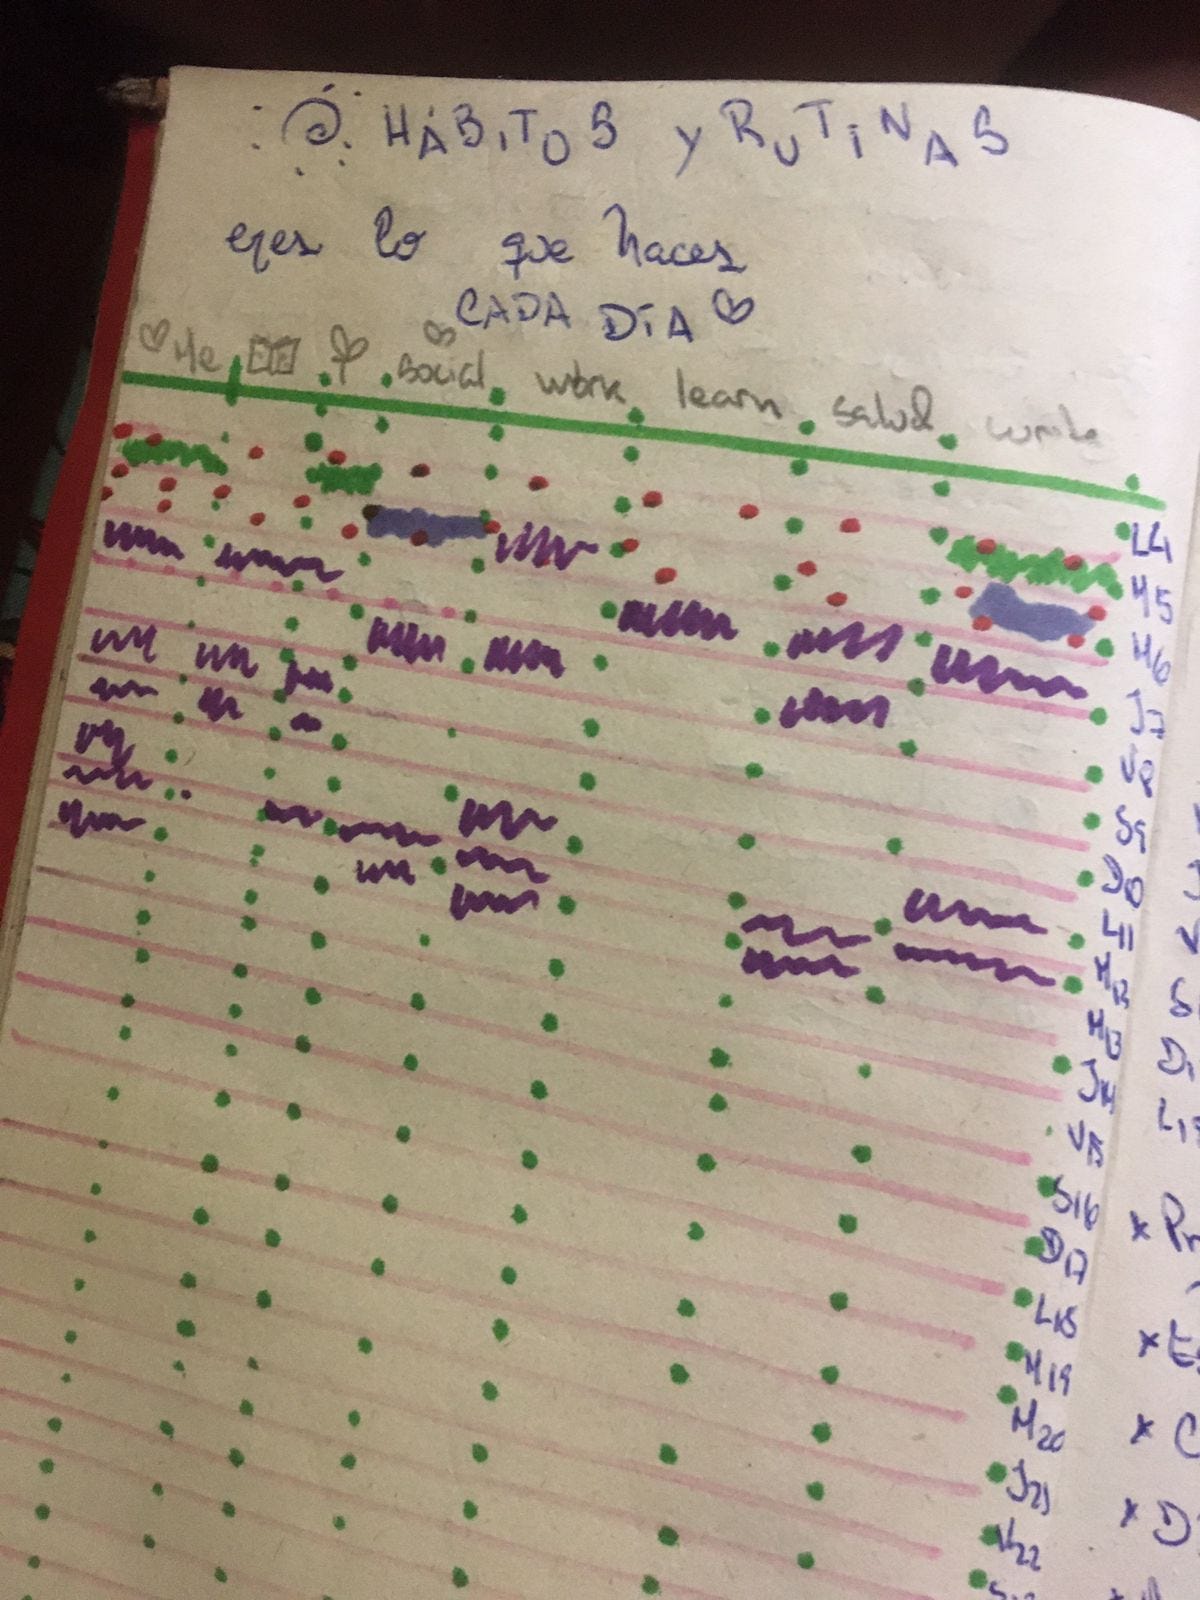 HÁBITOS Y RUTINAS
eres lo que haces
CADA DÍA
Me social work learn salud write
L4
M5
M6
J7
V8
S9
D10
L11
M12
M13
J14
V15
S16
D17
L18
M19
M20
J21
V22